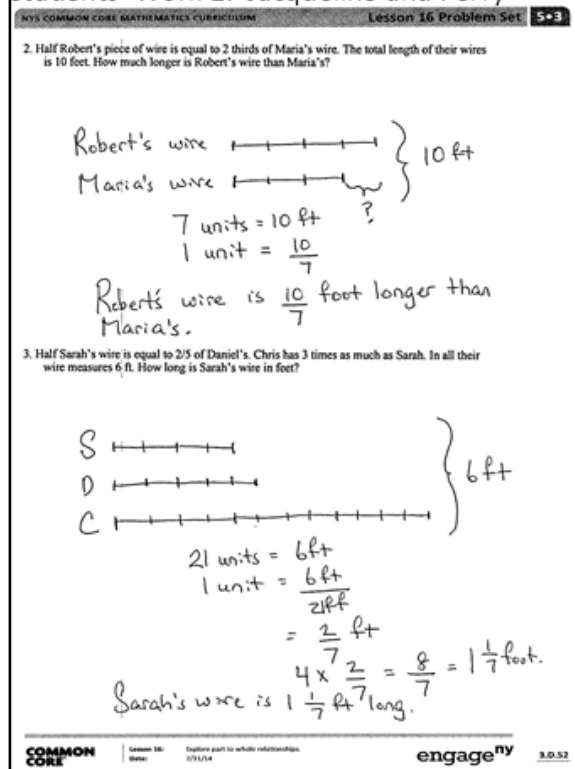 NYS COMMON CORE MATHEMATICS CURRICULUM Lesson 16 Problem Set 5•3
2. Half Robert's piece of wire is equal to 2 thirds of Maria's wire. The total length of their wires
is 10 feet. How much longer is Robert's wire than Maria's?
Robert's wire
10 ft
Maria's wire
?
7 units = 10 ft
1 unit = 10/7
Robert's wire is 10/7 foot longer than
Maria's.
3. Half Sarah's wire is equal to 2/5 of Daniel's. Chris has 3 times as much as Sarah. In all their
wire measures 6 ft. How long is Sarah's wire in feet?
S
D
6ft
C
21 units = 6ft
1 unit = 6ft/21ft
= 2/7 ft
4 x 2/7 = 8/7 = 1 1/7 foot.
Sarah's wire is 1 1/7 ft long.
COMMON
CORE
Lesson 16: Explore part to whole relationships.
Date: 7/31/14
engageny
3.D.52